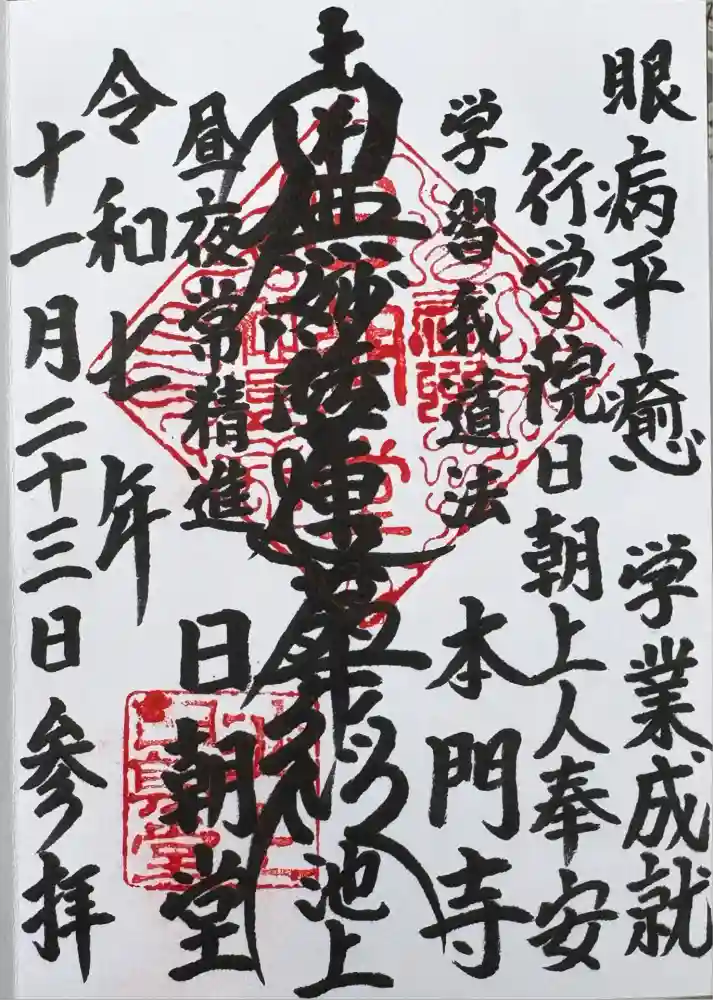 眼病平癒 学業成就
行学院日朝上人奉安
学習我道法
本門寺
南無妙法蓮華経
池上
昼夜常精進
日朝堂
令和七年
十一月二十三日参拝